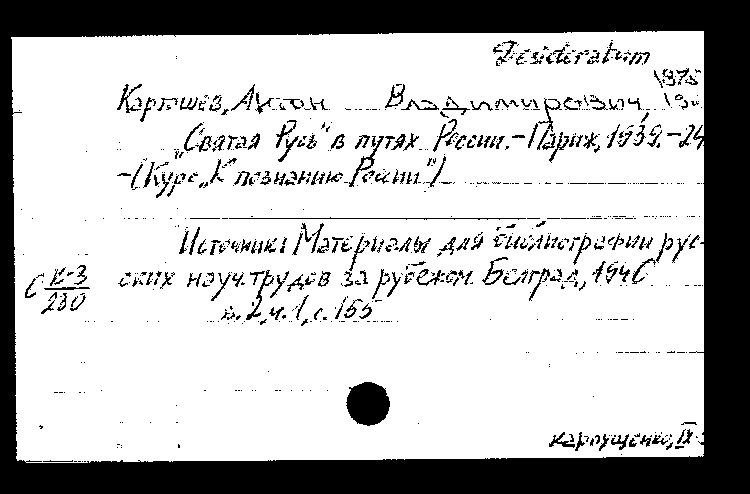 Desideratum
1875
Карташев, Антон Владимирович, 19
„Святая Русь" в путях России. – Париж, 1939. – 24
– (Курс „К познанию России")
Источник: Материалы для библиографии рус-
ских науч. трудов за рубежом. Белград, 1940
в. 2, ч. 1, с. 155
С К-3
230
карпущенко, IX